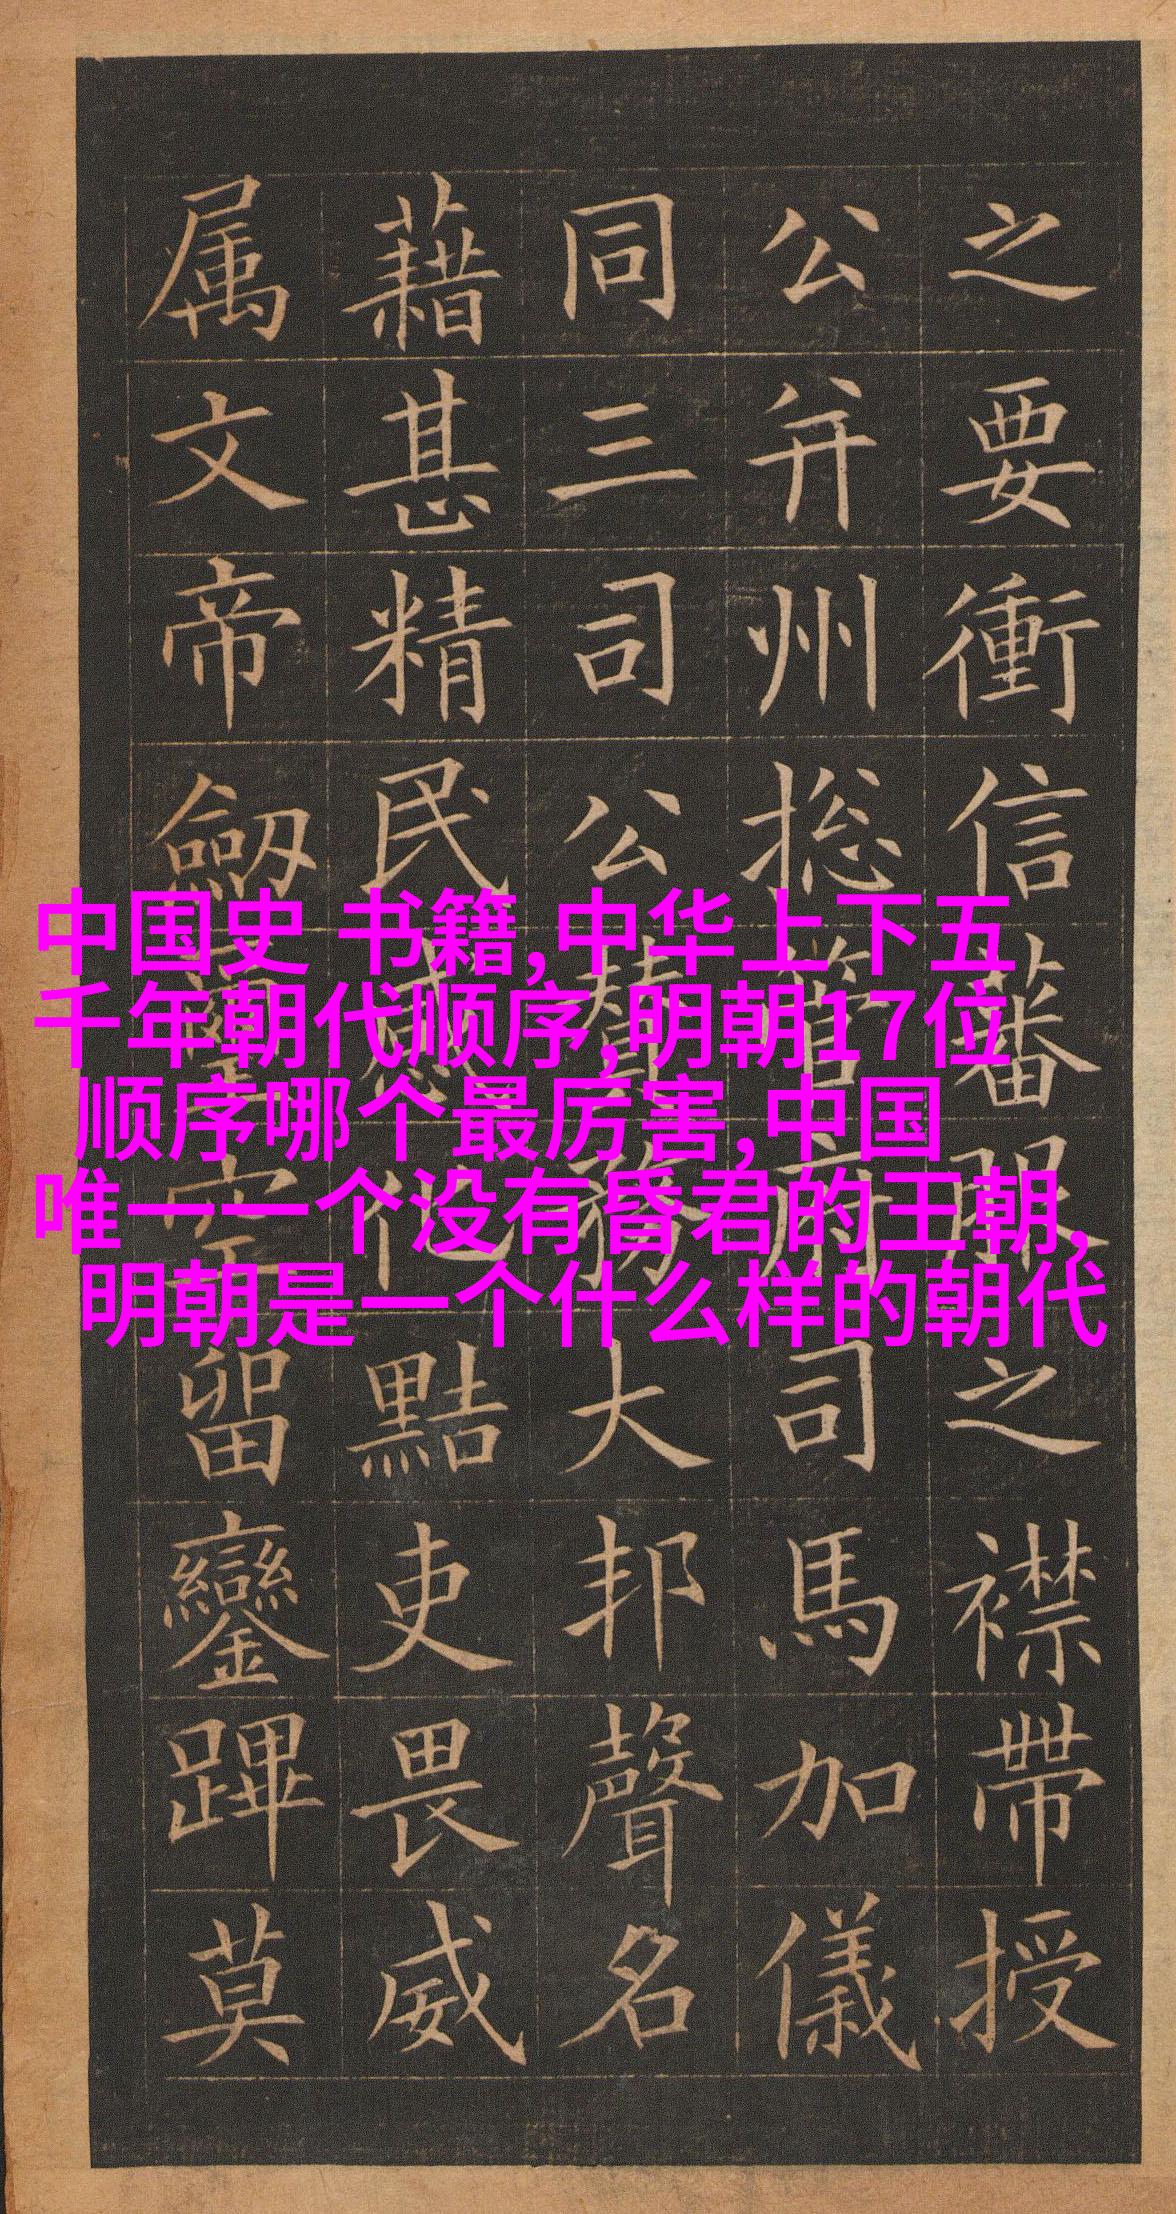 中国史 书籍,中华上下五
千年朝代顺序,明朝17位
顺序哪个最厉害,中国
唯一一个没有昏君的王朝,
明朝是一个什么样的朝代
之要衝信蕃服之襟帶授
公并州揔管府司馬加儀
同三司公賛務大邦聲名
藉甚精民感化黠吏畏威
属文帝劒璽空留鑾蹕莫